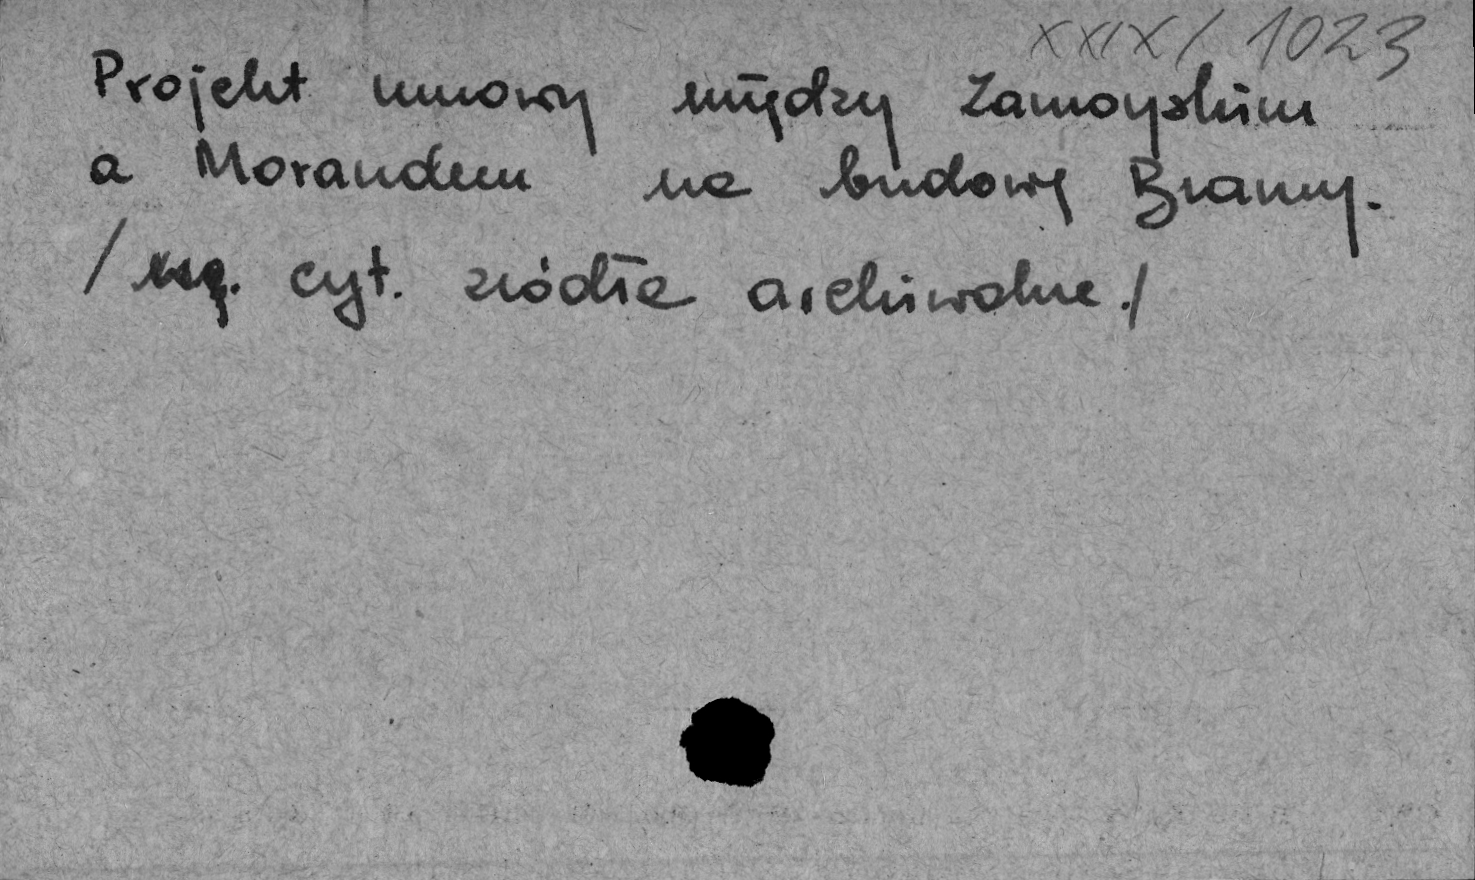 XXIX/1023
Projekt umowy między Zamoyskim
a Morandem na budowę Bramy.
/wg. cyt. źródła archiwalne./